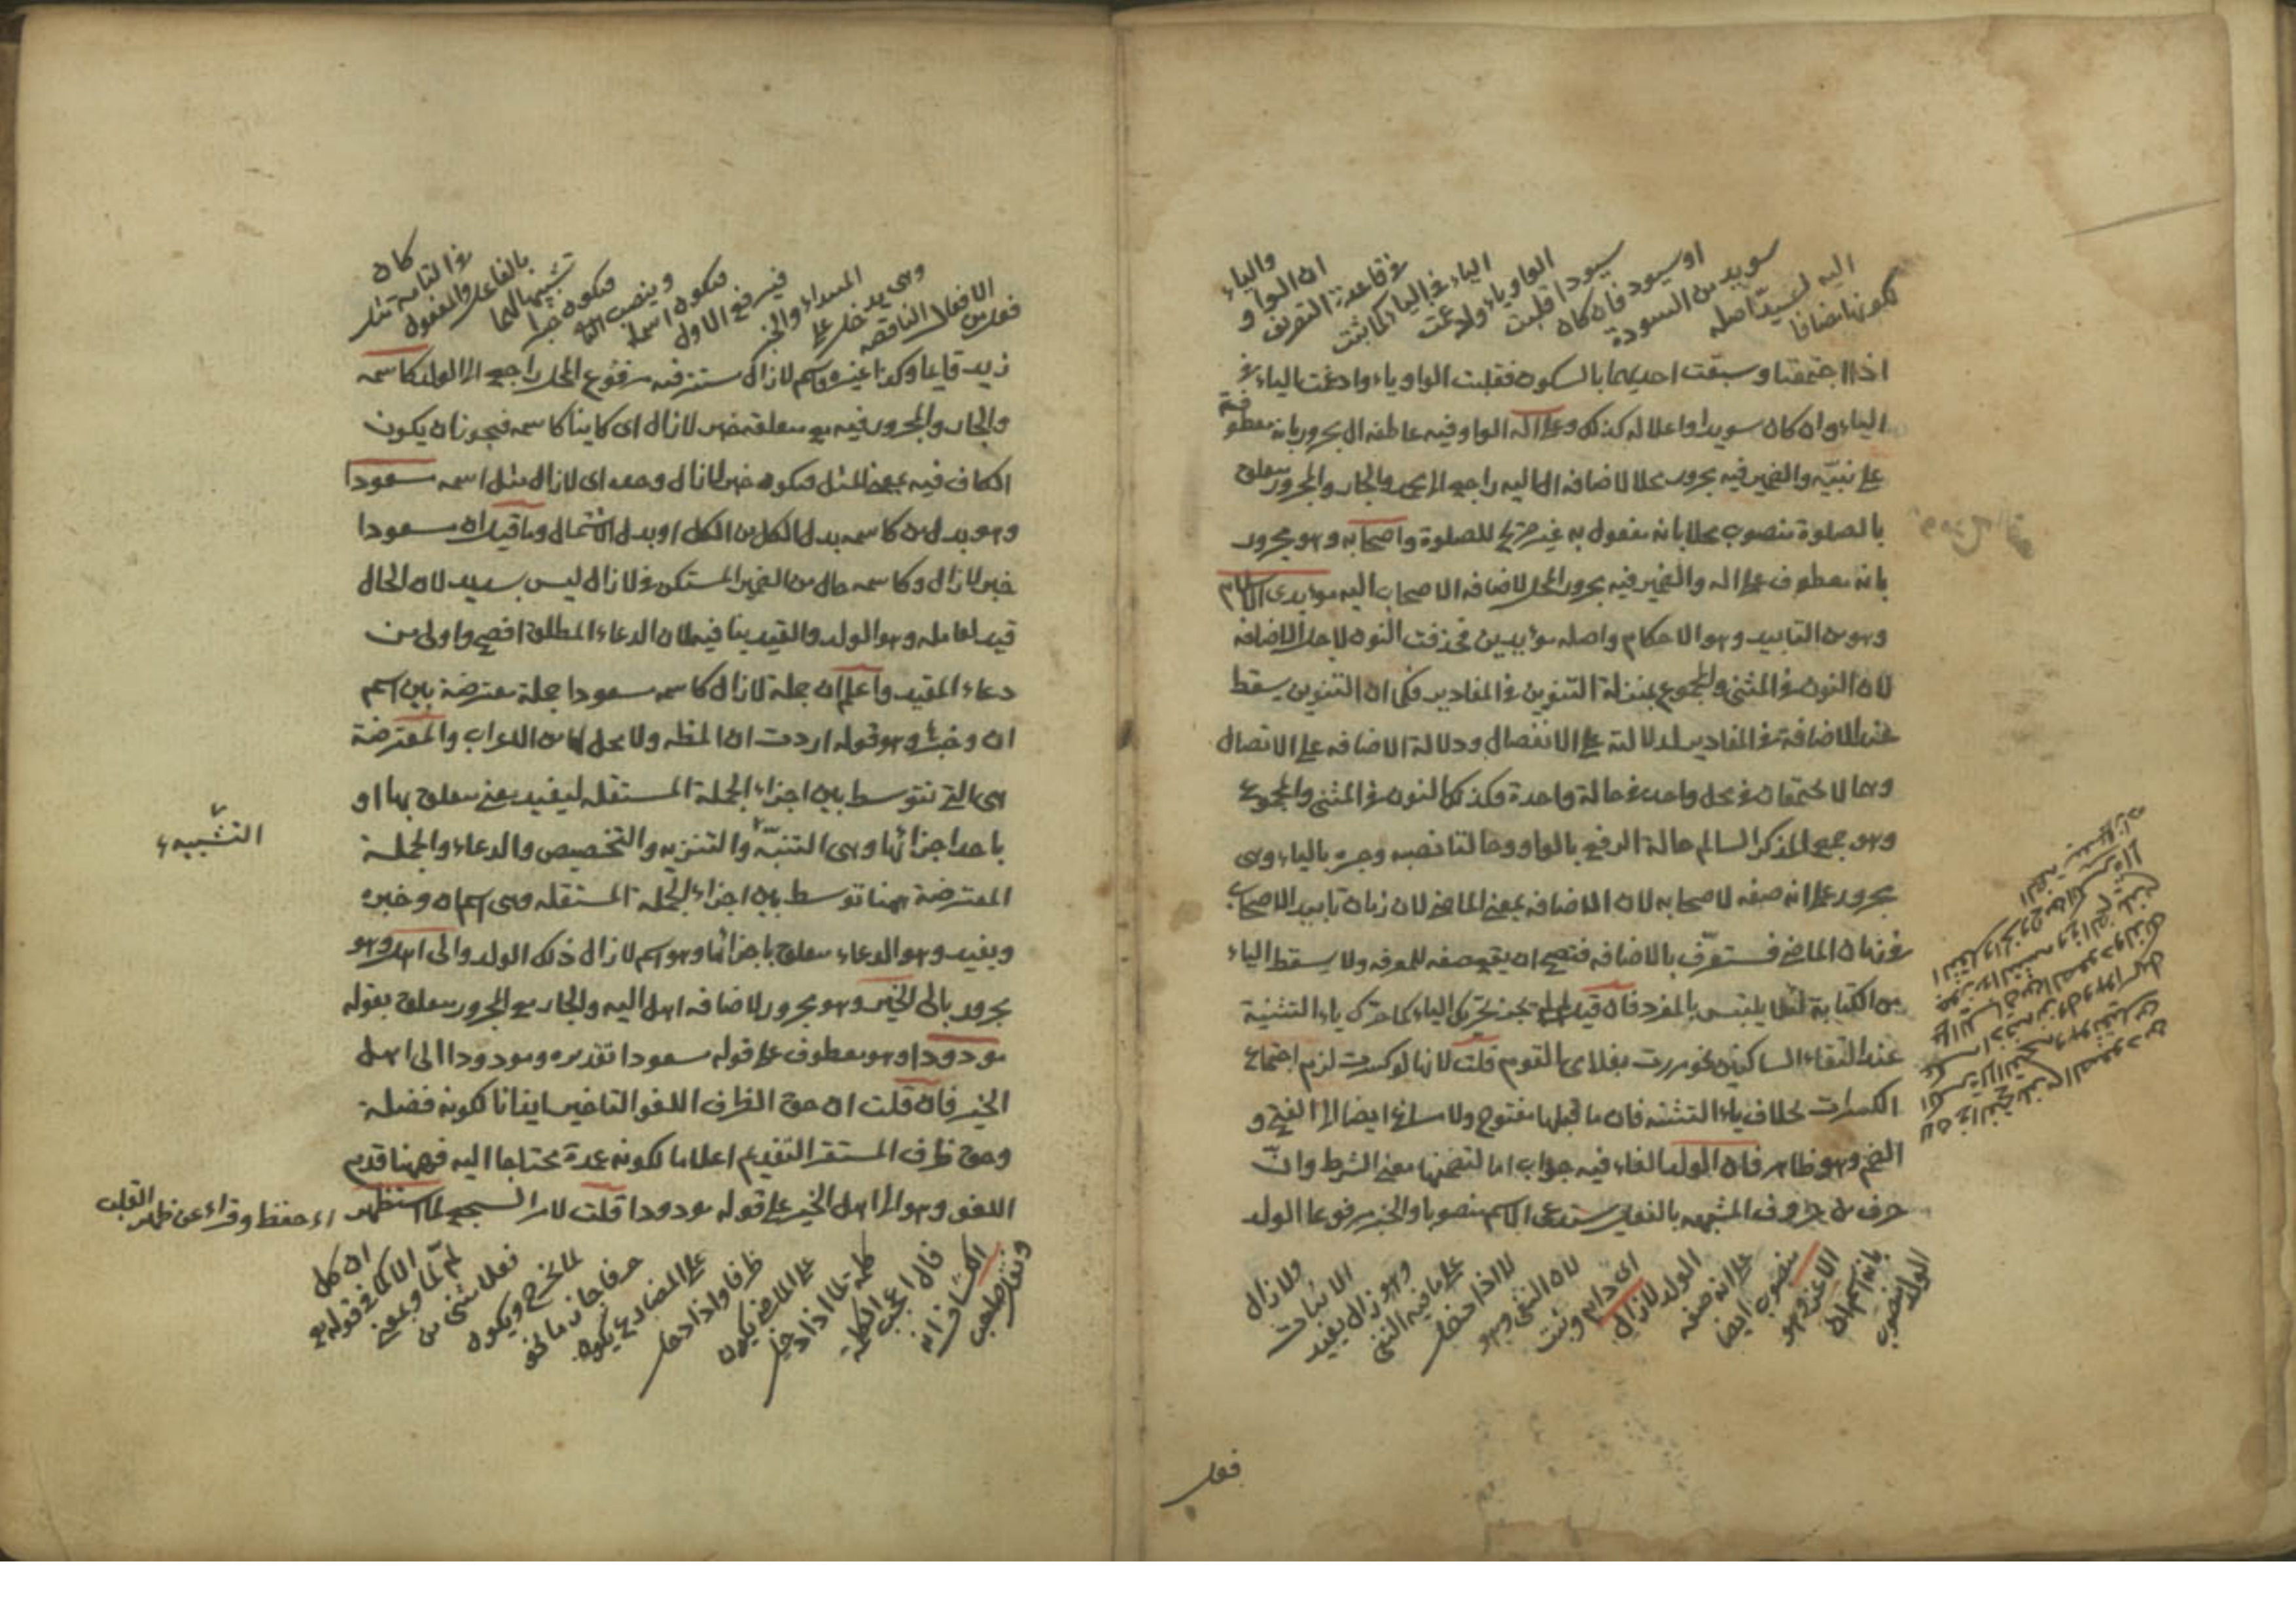 لكونها مضافا
اليه لسيد اصله
سويد من السودة
او سيود فان كان
سيودا قلبت
الواو ياء وادغمت
الياء في الياء كما ثبت
في قاعدة التصريف
ان الواو
والياء
اذا اجتمعتا وسبقت احديهما بالسكون فقلبت الواو ياء وادغمت الياء في
الياء وان كان سويدا واعلاله كذلك وعلى آله الواو فيه عاطفة ال مجرور بانه معطوف
على نبيه والضمير فيه مجرور محلا لاضافة ال اليه راجع الى محمد والجار والمجرور متعلق
بالصلوة منصوب محلا بانه مفعول به غير صريح للصلوة واصحابه وهو مجرور
بانه معطوف على اله والضمير فيه مجرور المحل لاضافة الاصحاب اليه مؤيدى الاسلام
وهو من التاييد وهو الاحكام واصله مؤيدين فحذفت النون لاجل الاضافة
لان النون في المثنى والمجموع بمنزلة التنوين في المفاديد فكما ان التنوين يسقط
عند الاضافة في المفاديد لدلالته على الانفصال ودلالة الاضافة على الاتصال
وهما لا يجتمعان في محل واحد في حالة واحدة فكذلك النون في المثنى والمجموع
وهو جمع المذكر السالم حالة الرفع بالواو وحالتا نصبه وجره بالياء وهى
مجرور على انه صفة لاصحابه لان الاضافة بمعنى الماضى لان زمان تاييد الاصحاب
في زمان الماضى فتستعرّف بالاضافة فتصح ان يقع صفة للمعرفة ولا يسقط الياء
من الكتابة لئلا يلتبس بالمفرد فان قيل لم لم يجز تحريك الياء كما حرك ياء التثنية
عند التقاء الساكنين نحو مررت بغلامى القوم قلت لانها لو كسرت لزم اجتماع
الكسرات بخلاف ياء التثنية فان ما قبلها مفتوح ولا مساغ ايضا الى الفتح و
الضم وهو ظاهر فان الولد الفاء فيه جواب اما لتضمنها معنى الشرط وانّ
حرف من حروف المشبهة بالفعل يستدعى الاسم منصوبا والخبر مرفوعا الولد
الولد منصوب
بانه اسم ان
الاعز وهو
منصوب ايضا
على انه صفة
الولد لازال
اى دام وثبت
لان النفى وهو
لا اذا دخل
على ما فيه النفى
وهو زال يفيد
الاثبات
ولازال
فعل
فعل من
الافعال الناقصة
وهى يدخل على
المبتداء والخبر
فيرفع الاول
فيكون اسما
وينصب الثانى
فيكون خبرا
تشبيها لهما
بالفاعل والمفعول
في التامة مثل
كان
زيد قايما وكذا غيره واسم لازال مستتر فيه مرفوع المحل راجع الى الولد كاسمه
والجار والمجرور فيه مع متعلقه خبر لازال اى كاينا كاسمه فيجوز ان يكون
الكاف فيه بمعنى المثل فيكون خبر لازال وحده اى لازال مثل اسمه مسعودا
وهو بدل من كاسمه بدل الكل من الكل او بدل الاشتمال وما قيل ان مسعودا
خبر لازال وكاسمه حال من الضمير المستكن في لازال ليس بسديد لان الحال
قيد لعامله وهو الولد والقيد ينافيه لان الدعاء المطلق افصح واولى من
دعاء المقيد واعلم ان جملة لازال كاسمه مسعودا جملة معترضة بين اسم
ان وخبره وهو قوله اردت ان الفظه ولا محل لها من الاعراب والمعترضة
هى التى تتوسط بين اجزاء الجملة المستقلة ليفيد معنى متعلق بها او
باحد اجزائها وهى التنبه والتنزيه والتخصيص والدعاء والجملة
التشبيه
المعترضة ههنا توسط بين اجزاء الجملة المستقلة وهى اسم ان وخبره
ويفيد وهو الدعاء متعلق باجزائها وهو اسم لازال ذلك الولد والى اهل وهو
مجرور بالى الخير وهو مجرور لاضافة اهل اليه والجار مع المجرور متعلق بقوله
مودودا وهو معطوف على قوله مسعودا تقديره ومودودا الى اهل
الخير فان قلت ان حق الظرف اللغو التاخير ايذانا لكونه فضلة
وحق ظرف المستقر التقديم اعلاما لكونه عمدة محتاجا اليه فههنا قدم
اللغو وهو الى اهل الخير على قوله مودودا قلت لامر السجع لما استظهر
اى حفظ وقراء عن ظهر القلب
الكشاف انه
قال اعجب الكلمة
كلمة لما اذا دخل
على الماضى يكون
ظرفا واذا دخل
على المضارع يكون
حرفا جازما نحو
لما يخرج ويكون
فعلا مثنى من
لمّ لما وبمعنى
الا كما في قوله تع
ان كل